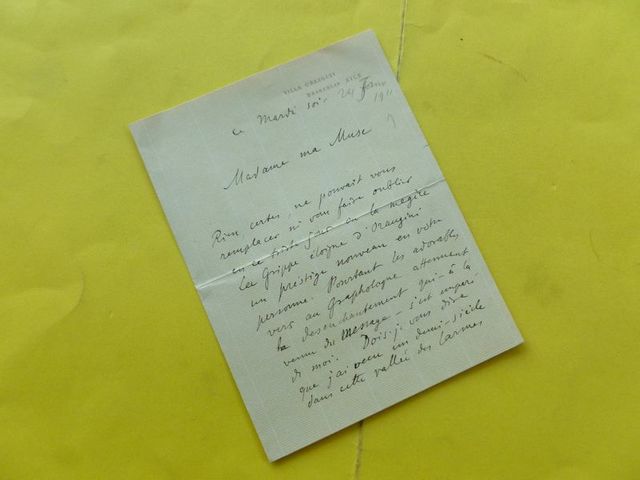 VILLA ORANGINI
NICE
ce Mardi soir 24 Février 1911
Madame ma Muse
Rien certes, ne pouvait vous
remplacer ni vous faire oublier
en ce triste jour où la
La Grippe éloigne d'Orangini
un prestige nouveau en votre
personne. Pourtant les adorables
vers au Graphologue attenuent
le desenchantement qui - à la
venue du Message - s'est empari
di moi. Dois-je vous dire
que j'ai vecu un demi-siècle
dans cette vallée des Larmes